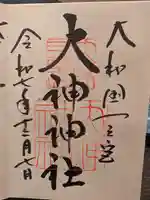 大和国一之宮
大神神社
令和七年十二月七日